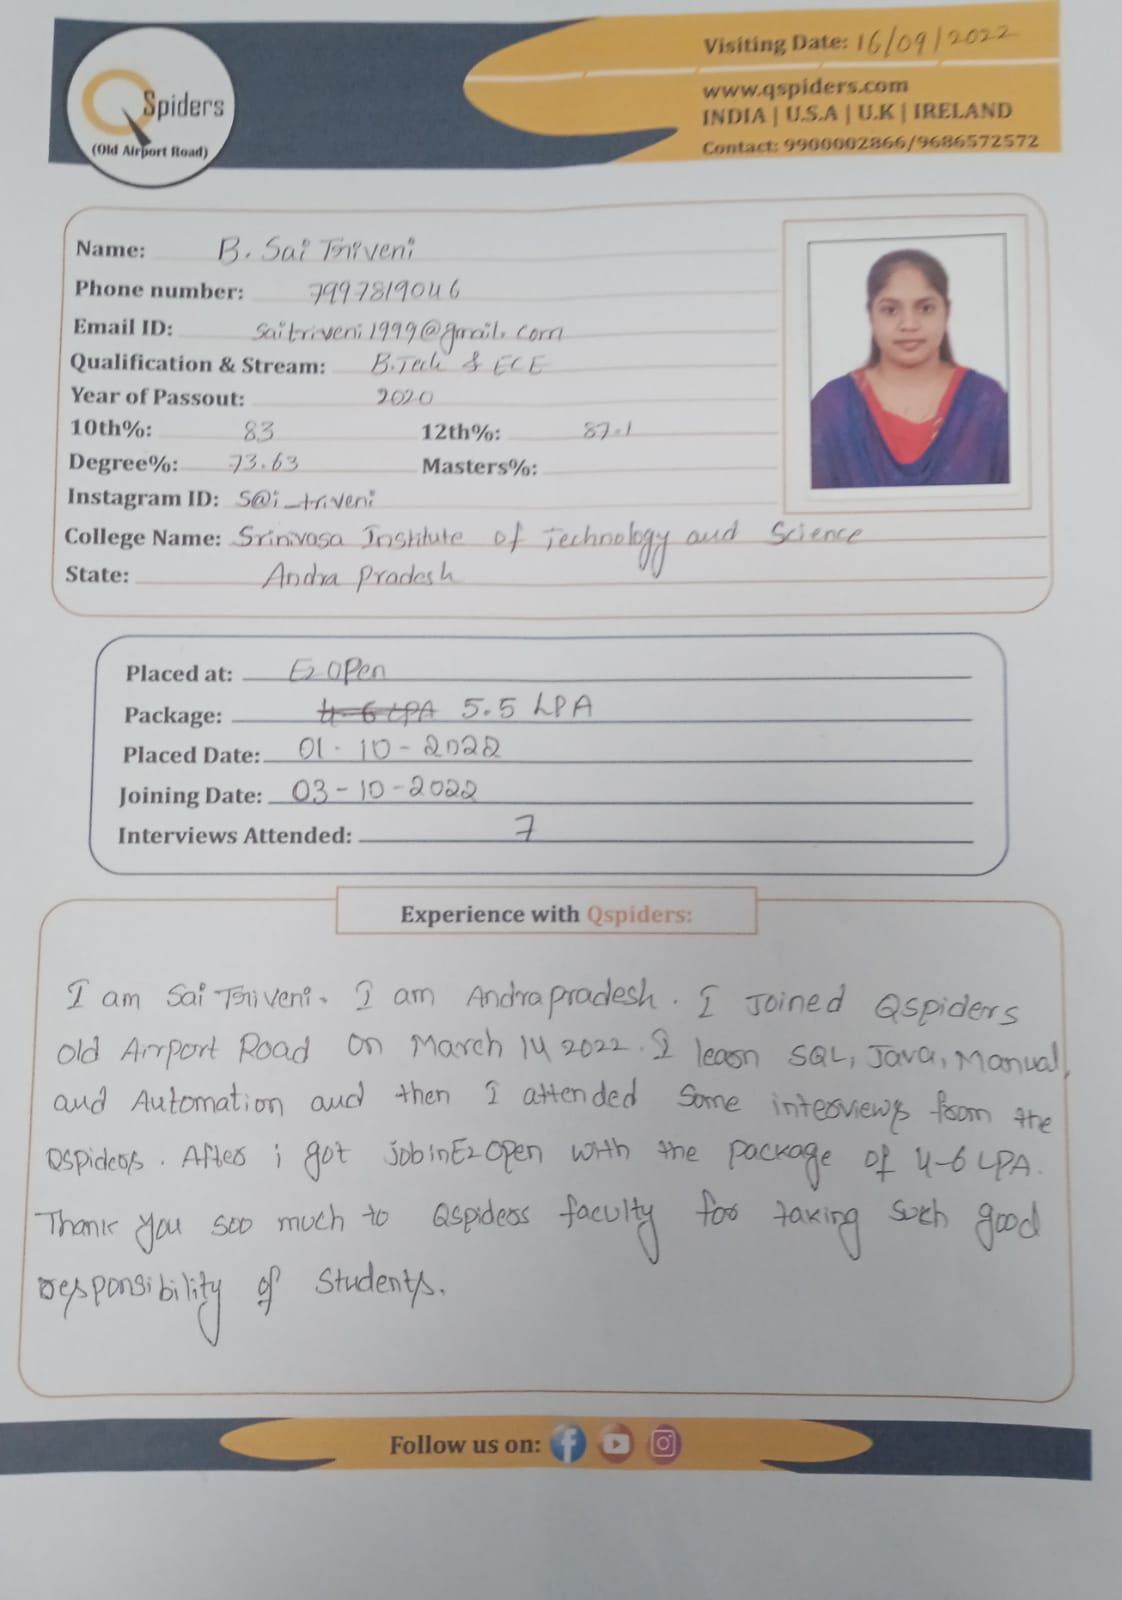 Spiders
(Old Airport Road)
Visiting Date: 16/09/2022
www.qspiders.com
INDIA | U.S.A | U.K | IRELAND
Contact: 9900002866/9686572572
Name: B. Sai Triveni
Phone number: 7997819046
Email ID: saitriveni1999@gmail.com
Qualification & Stream: B.Tech & ECE
Year of Passout: 2020
10th%: 83 12th%: 87.1
Degree%: 73.63 Masters%:
Instagram ID: S@i_triveni
College Name: Srinivasa Institute of Technology and Science
State: Andra Pradesh
Placed at: Ez Open
Package: 4-6 LPA 5.5 LPA
Placed Date: 01-10-2022
Joining Date: 03-10-2022
Interviews Attended: 7
Experience with Qspiders:
I am Sai Triveni. I am Andra pradesh. I Joined Qspiders
Old Airport Road on March 14 2022. I learn SQL, Java, Manual,
and Automation and then I attended Some interviews from the
Qspiders. After i got job in Ez Open with the package of 4-6 LPA.
Thank you soo much to Qspiders faculty for taking such good
responsibility of Students.
Follow us on: